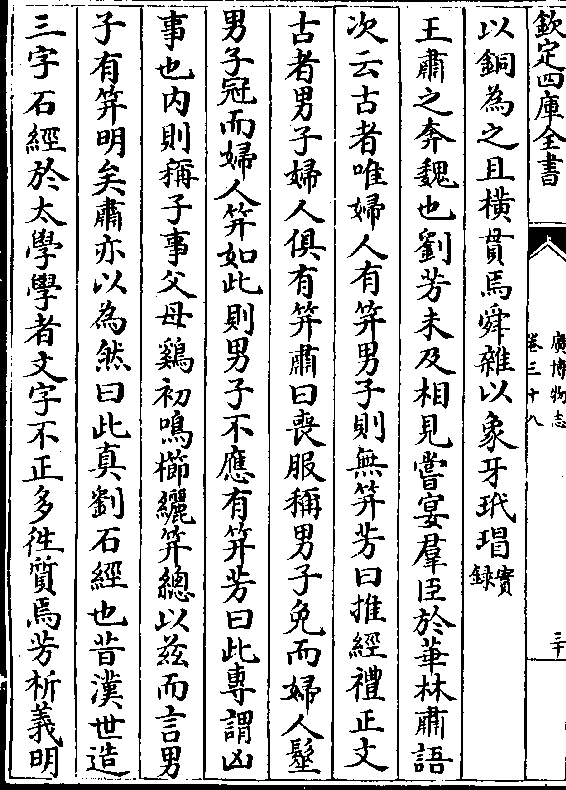 欽定四庫全書
廣博物志
卷三十八
三十
以銅為之且橫貫焉舜雜以象牙玳瑁實錄
王肅之奔魏也劉芳未及相見嘗宴羣臣於華林肅語
次云古者唯婦人有笄男子則無笄芳曰推經禮正文
古者男子婦人俱有笄肅曰喪服稱男子免而婦人髽
男子冠而婦人笄如此則男子不應有笄芳曰此專謂凶
事也內則稱子事父母鷄初鳴櫛纚笄總以兹而言男
子有笄明矣肅亦以為然曰此真劉石經也昔漢世造
三字石經於太學學者文字不正多徃質焉芳析義明